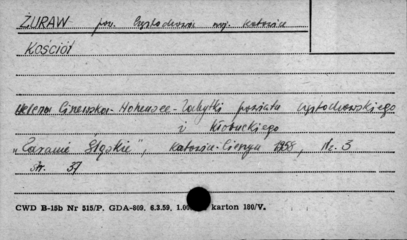 ŻURAW pow. Częstochowa woj. Katowice
KOŚCIÓŁ
Helena Cinewska-Hohensee - Zabytki powiatu częstochowskiego
i kłobuckiego
"Ceramie Śląskie", Katowice-Cieszyn 1958, Nr. 3
str. 37
CWD B-15b Nr 515/P. GDA-809. 6.3.59, 1.00 karton 180/V.